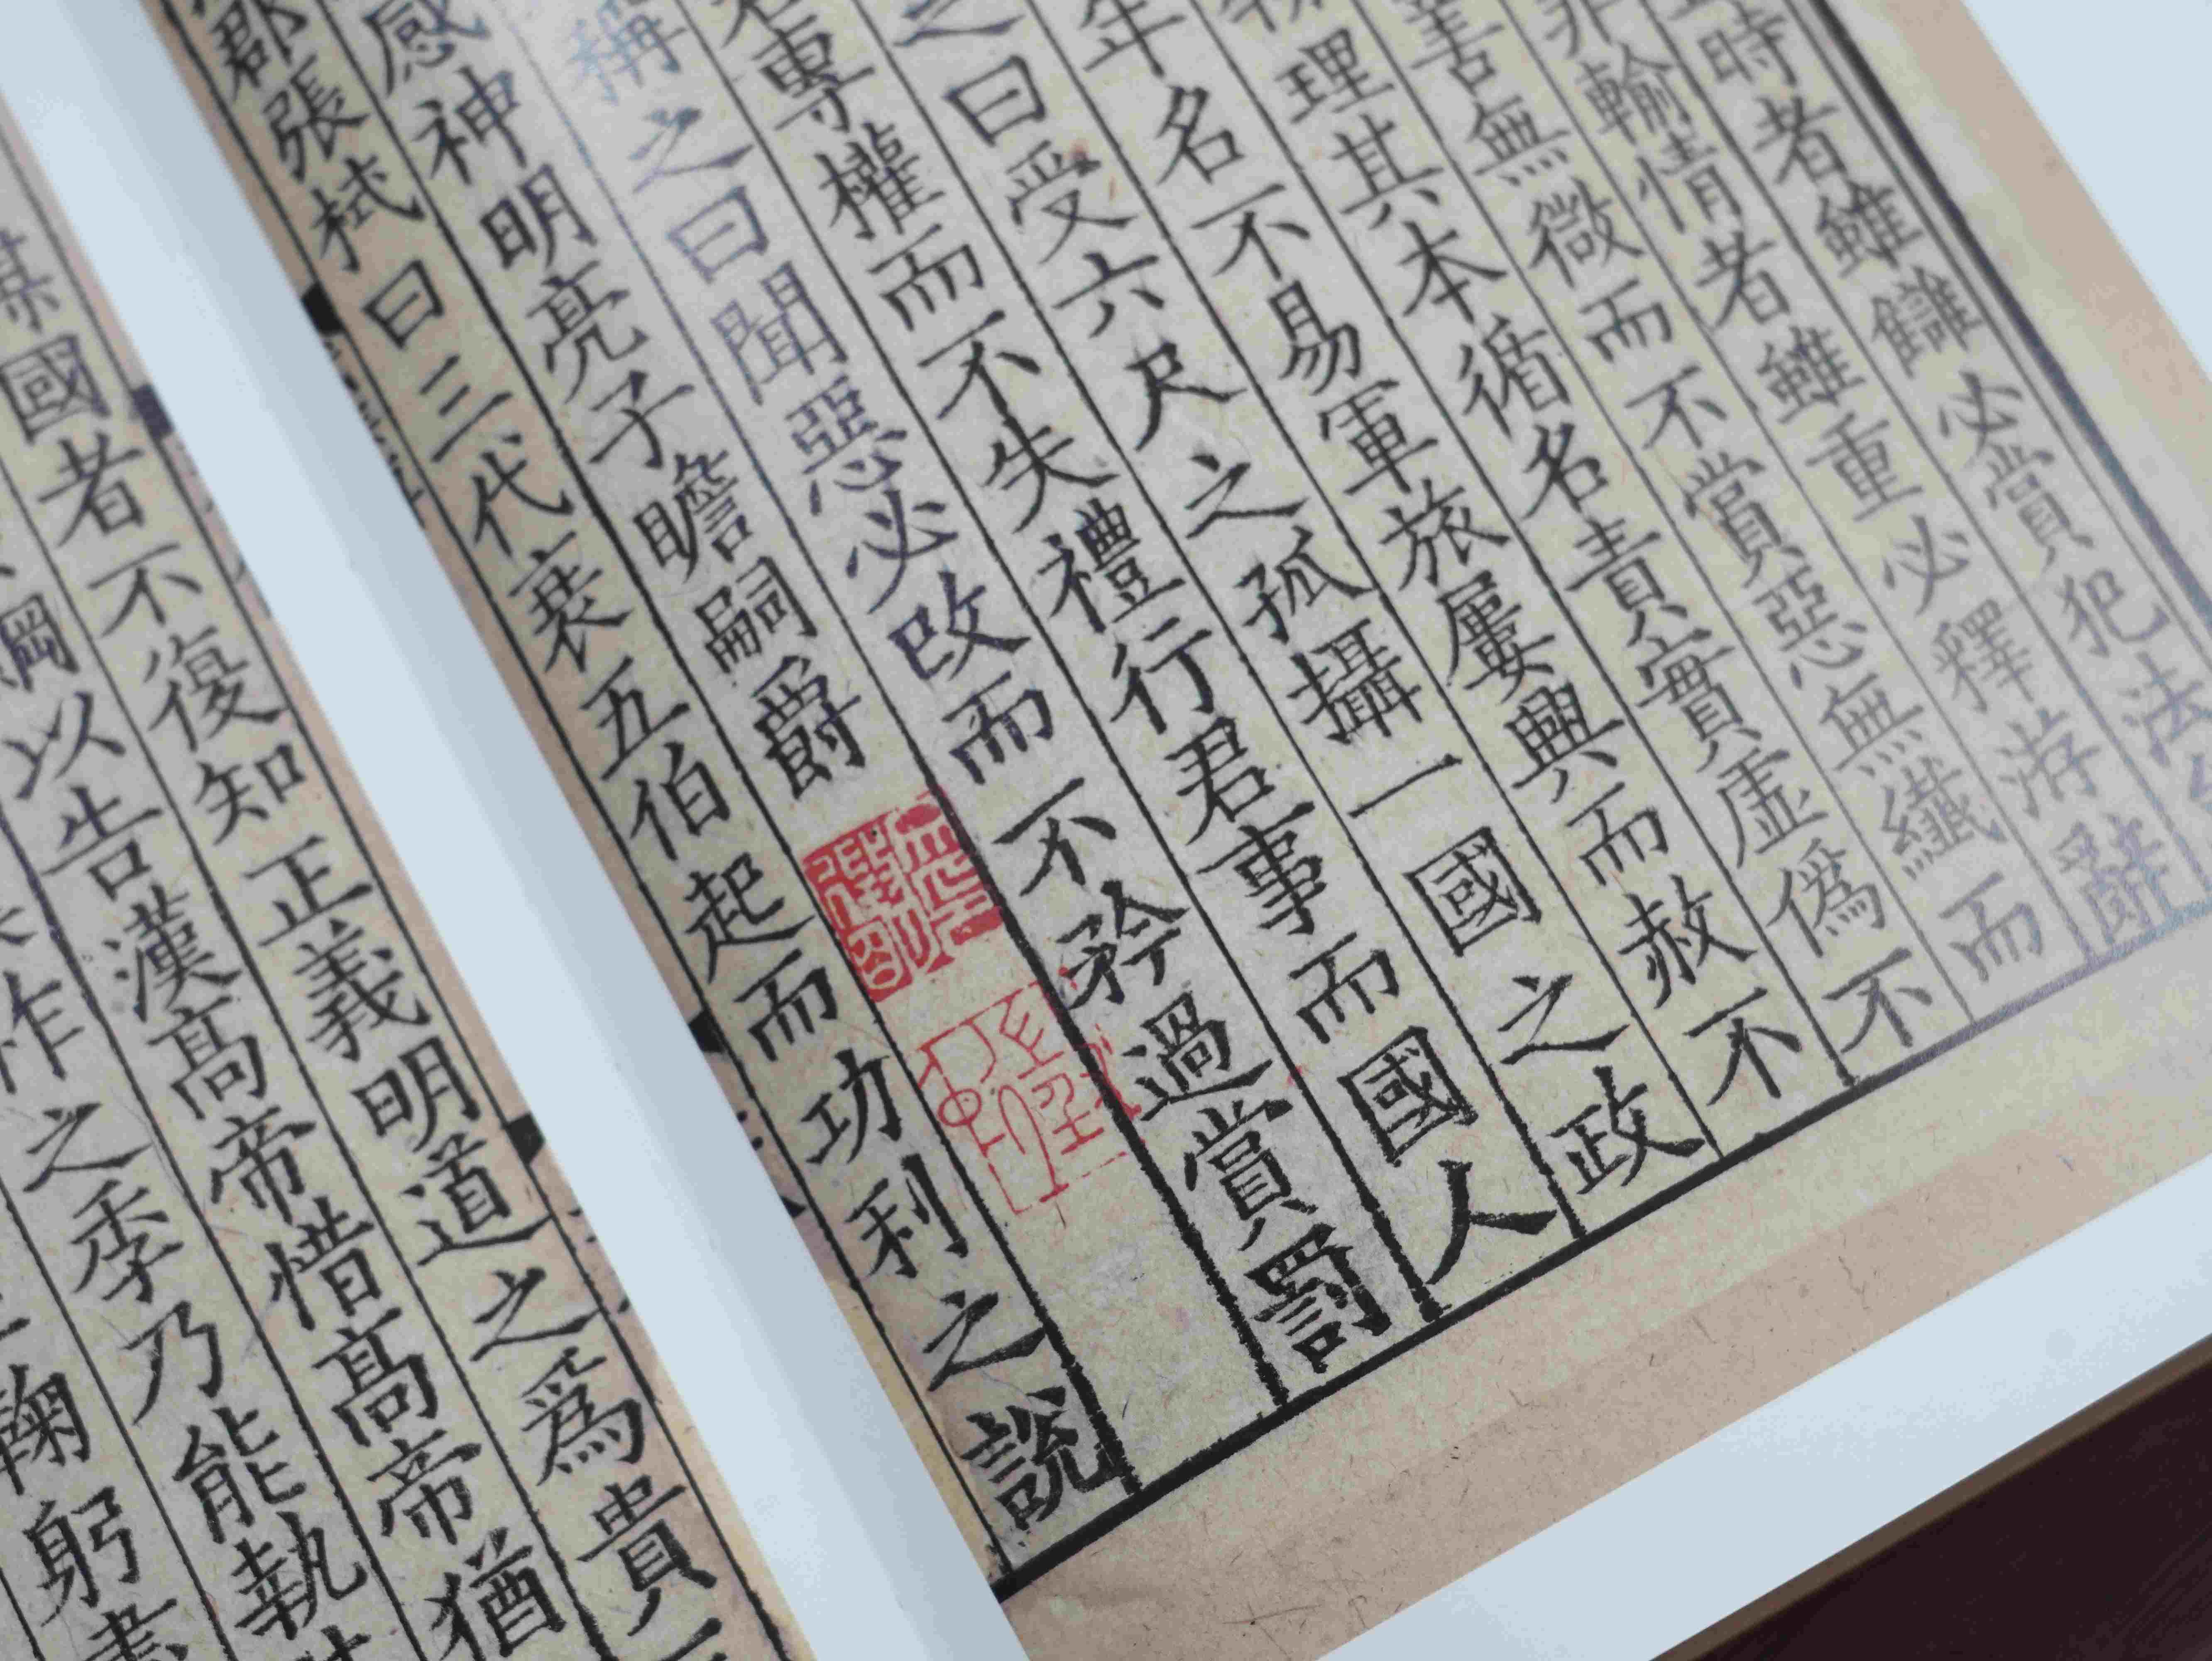 時者雖讎必賞犯法
輸情者雖重必釋游辭
善無微而不賞惡無纖而
理其本循名責實虛偽不
年名不易軍旅屢興而赦不
之曰受六尺之孤攝一國之政
君專權而不失禮行君事而國人
稱之曰聞惡必改而不矜過賞罰
感神明亮子瞻嗣爵
郡張栻曰三代衰五伯起而功利之說
國者不復知正義明道之爲貴
綱以告漢高帝惜高帝猶
之季乃能執
鞠躬